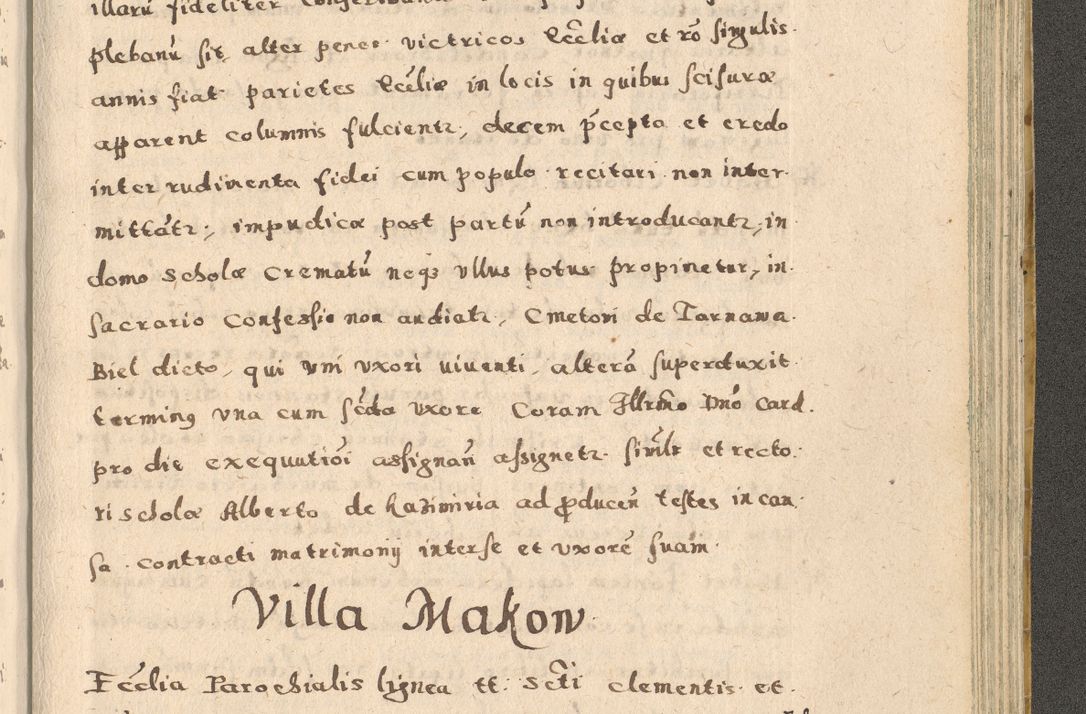 illarũ fideliter
plebanũ sit, alter penes victricos Ecclię et rõ singulis
annis fiat parietes Ecclię in locis in quibus scisurę
apparent columnis fulcientr, decem pcepta et credo
inter rudimenta fidei cum populo recitari non inter
mittãtr, impudicę post partũ non introducantr, in
domo scholę Crematũ neqz ullus potus propinetur, in
sacrario Confessio non audiatr, Cmetoni de Tarnawa
Biel dicto, qui uni uxori viventi, alterã superduxit
terminus una cum scda uxore Coram Illrmo Dno Card.
pro die exequutiõi assignañ assignetr. simile et recto
ri scholę Alberto de Kazimiria ad producen testes in cau
sa contracti matrimonij inter se et uxorẽ suam
Villa Makow
Ecclia Parochialis lignea tt. Scti Clementis et